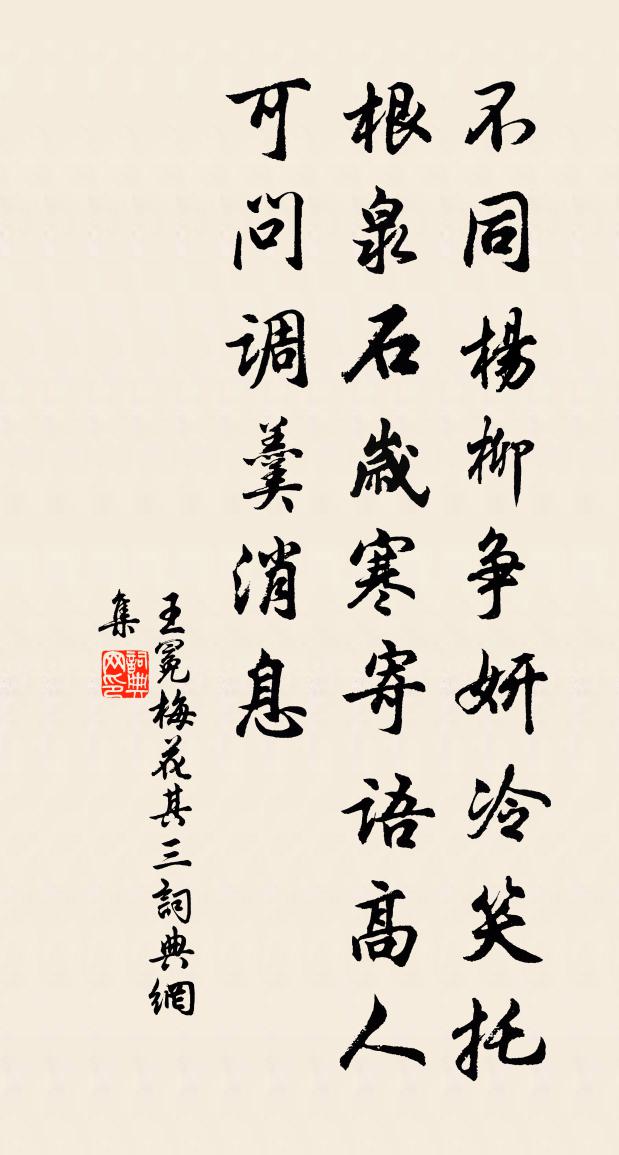 不同楊柳争妍冷笑托
根泉石歲寒寄语高人
可问调羹消息
王冕梅花其三詞典網
集
詞典
网印